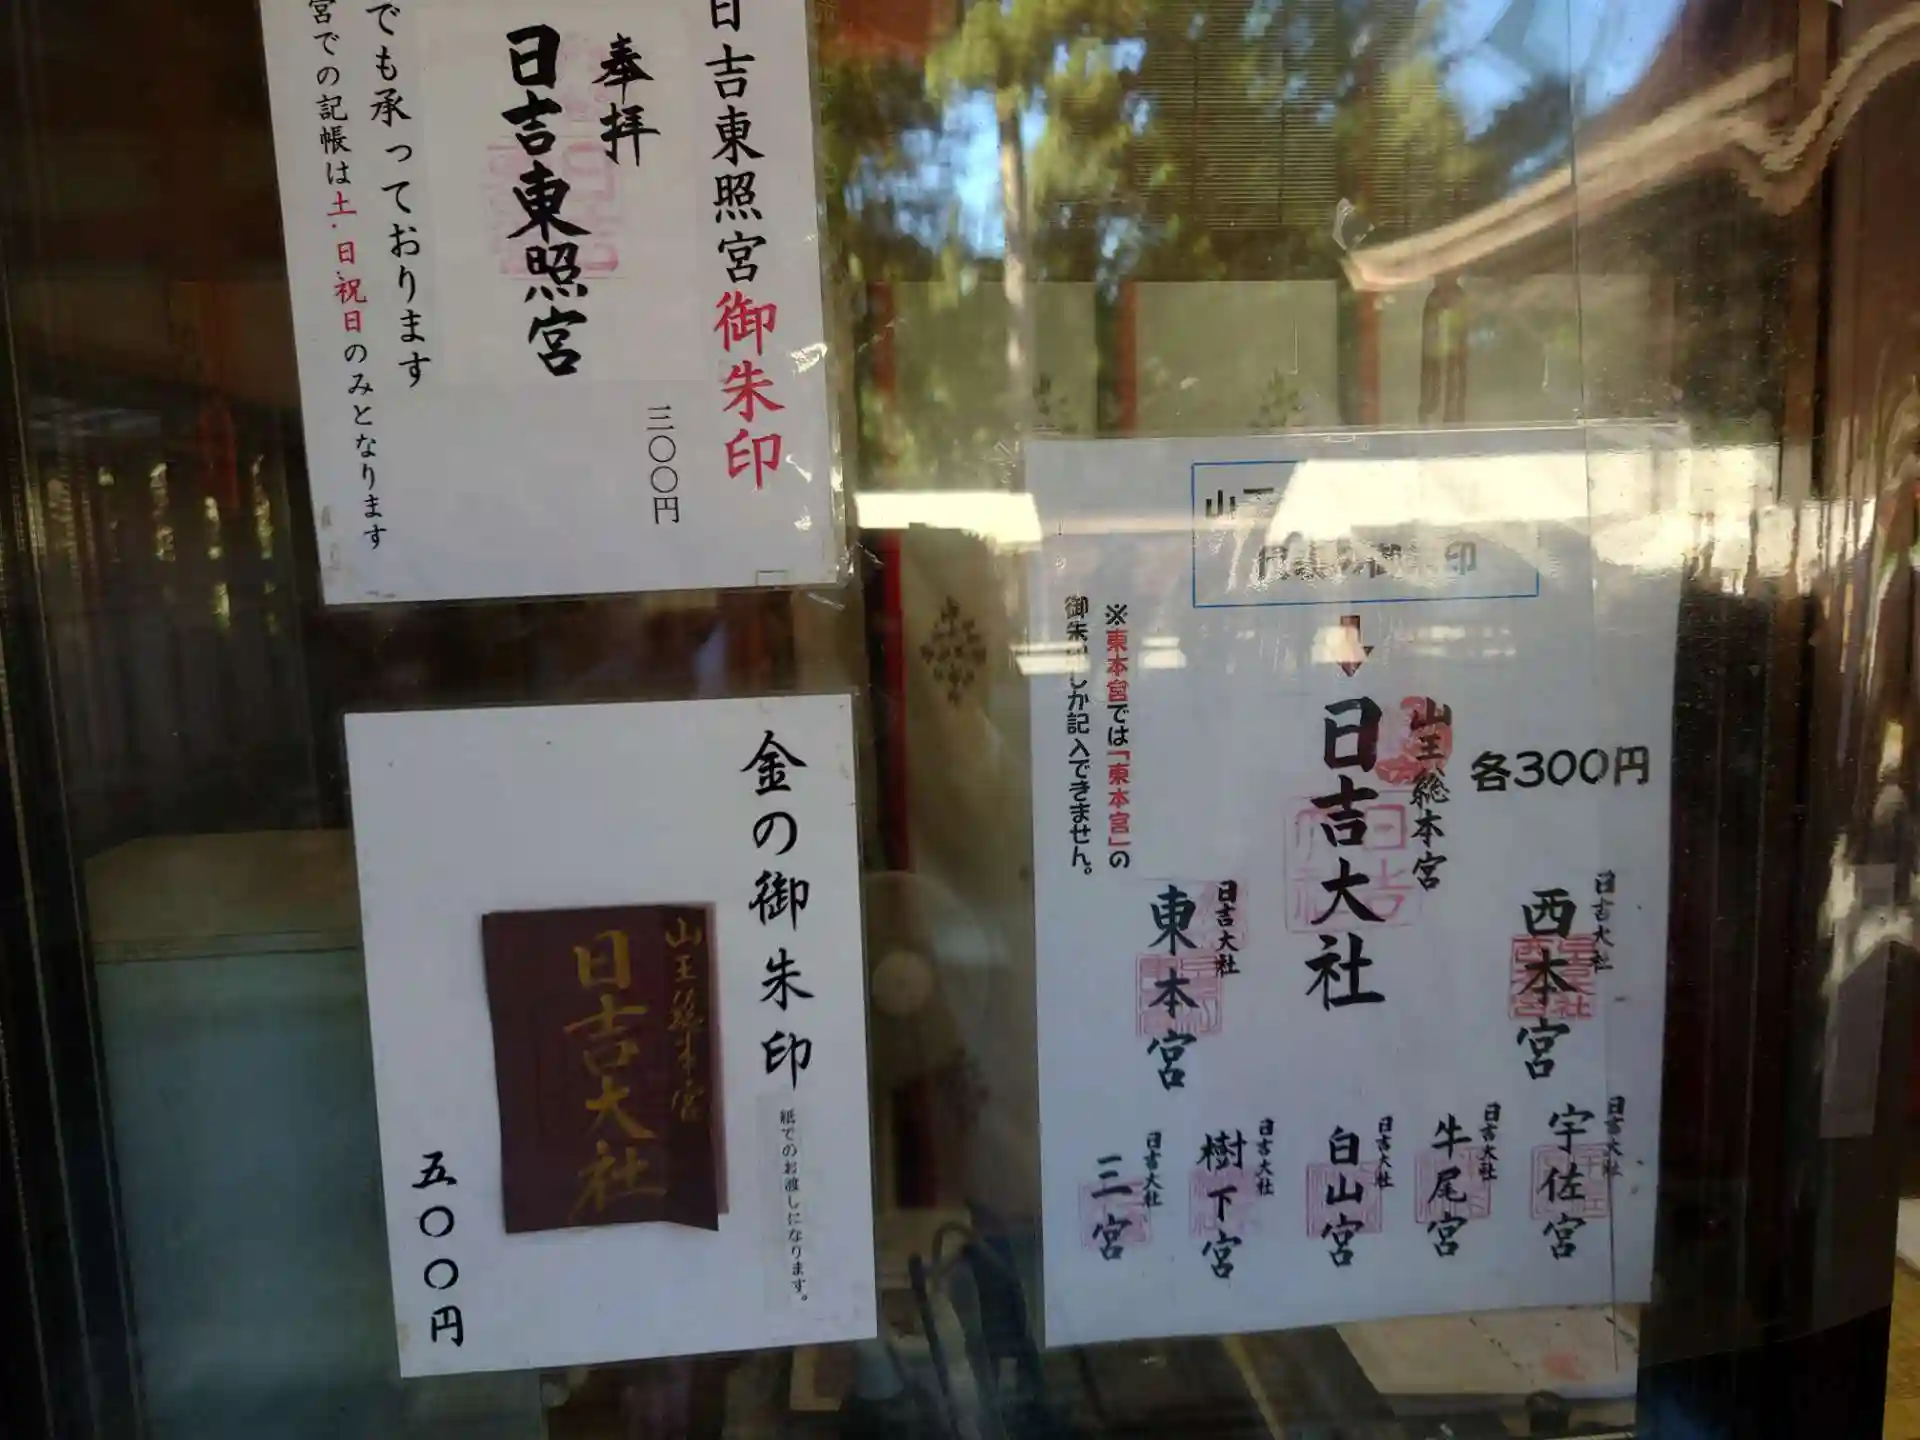 日吉東照宮御朱印
三〇〇円
奉拝
日吉東照宮
でも承っております
宮での記帳は土・日祝日のみとなります
金の御朱印
紙でのお渡しになります。
山王総本宮
日吉大社
五〇〇円
印
各300円
山王総本宮
日吉大社
※東本宮では「東本宮」の
御朱印しか記入できません。
日吉大社
西本宮
日吉大社
東本宮
日吉大社
宇佐宮
日吉大社
牛尾宮
日吉大社
白山宮
日吉大社
樹下宮
日吉大社
三宮